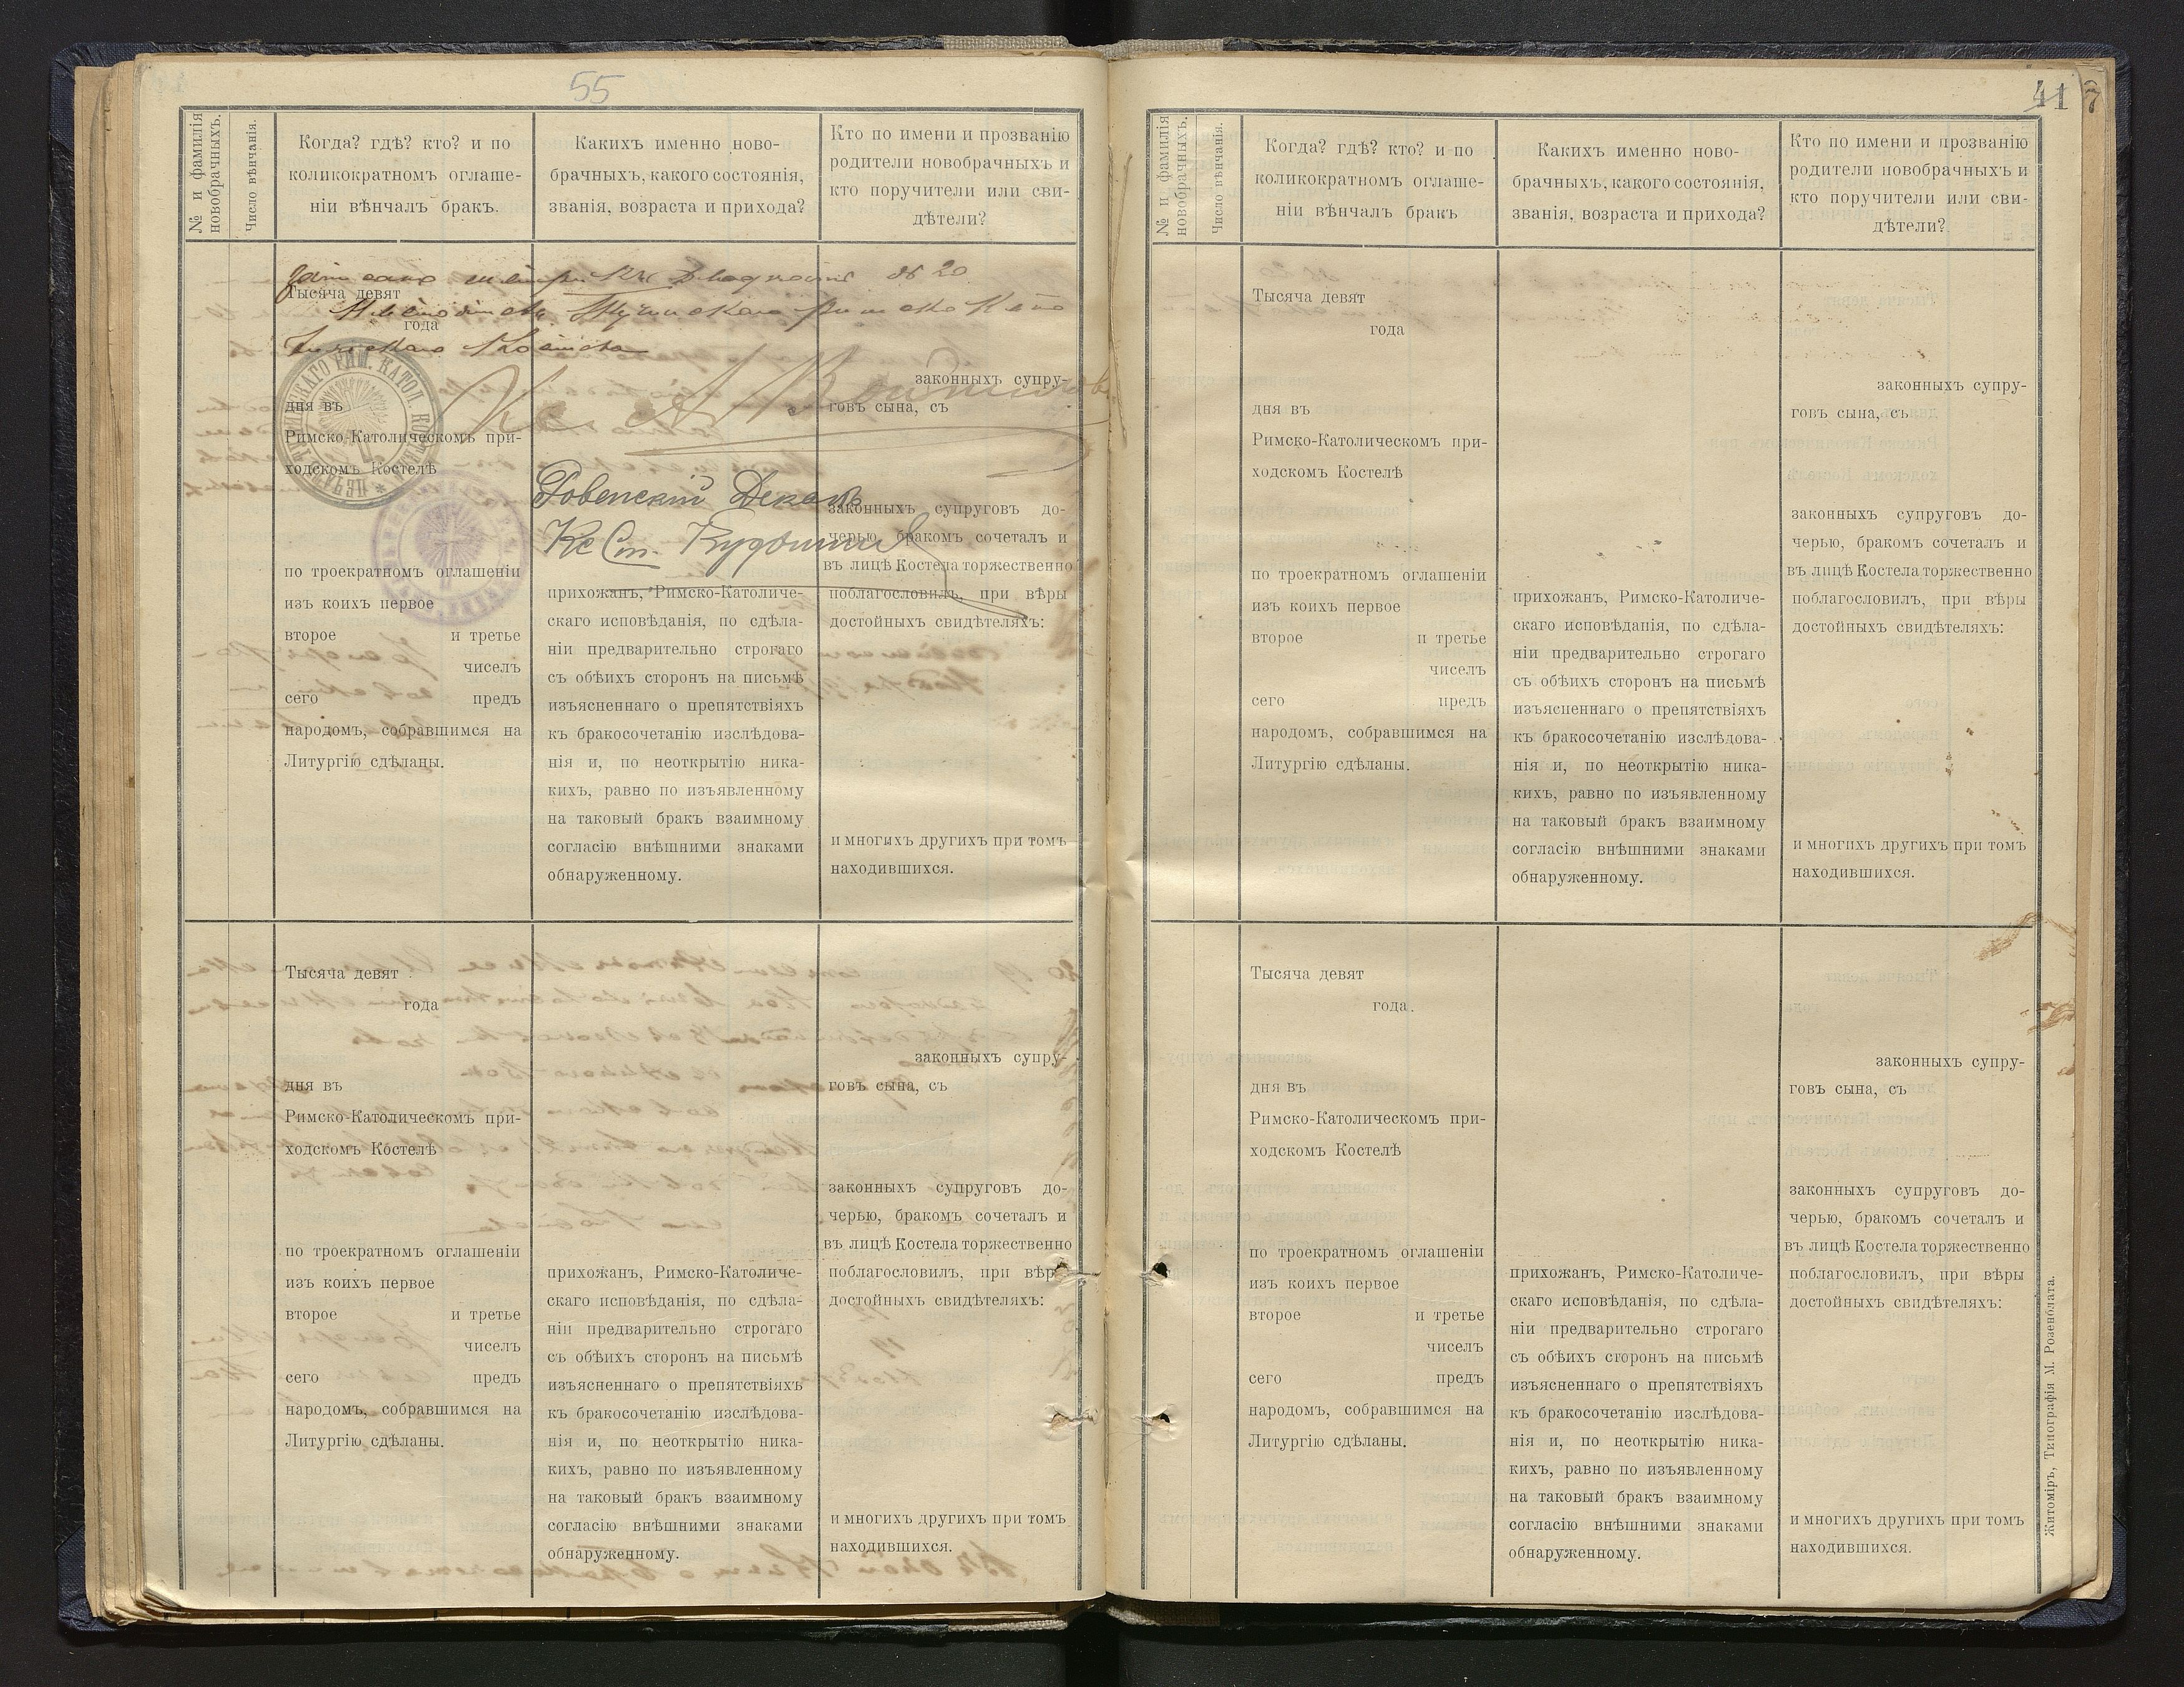 55
№ и фамилія
новобрачныхъ.
Число вѣнчанія.
Когда? гдѣ? кто? и по
коликократномъ оглаше-
ніи вѣнчалъ бракъ.
Какихъ именно ново-
брачныхъ, какого состоянія,
званія, возраста и прихода?
Кто по имени и прозванію
родители новобрачныхъ и
кто поручители или сви-
дѣтели?
№ 20
Тысяча девят
года
дня въ
Римско-Католическомъ при-
ходскомъ Костелѣ
по троекратномъ оглашеніи
изъ коихъ первое
второе и третье
чиселъ
сего предъ
народомъ, собравшимся на
Литургію сдѣланы.
Ровенскій Деканъ
Кс
прихожанъ, Римско-Католиче-
скаго исповѣданія, по сдѣла-
ніи предварительно строгаго
съ обѣихъ сторонъ на письмѣ
изъясненнаго о препятствіяхъ
къ бракосочетанію изслѣдова-
нія и, по неоткрытію ника-
кихъ, равно по изъявленному
на таковый бракъ взаимному
согласію внѣшними знаками
обнаруженному.
законныхъ супру-
говъ сына, съ
законныхъ супруговъ до-
черью, бракомъ сочеталъ и
въ лицѣ Костела торжественно
поблагословилъ, при вѣры
достойныхъ свидѣтеляхъ:
и многихъ другихъ при томъ
находившихся.
Тысяча девят
года
дня въ
Римско-Католическомъ при-
ходскомъ Костелѣ
по троекратномъ оглашеніи
изъ коихъ первое
второе и третье
чиселъ
сего предъ
народомъ, собравшимся на
Литургію сдѣланы.
прихожанъ, Римско-Католиче-
скаго исповѣданія, по сдѣла-
ніи предварительно строгаго
съ обѣихъ сторонъ на письмѣ
изъясненнаго о препятствіяхъ
къ бракосочетанію изслѣдова-
нія и, по неоткрытію ника-
кихъ, равно по изъявленному
на таковый бракъ взаимному
согласію внѣшними знаками
обнаруженному.
законныхъ супру-
говъ сына, съ
законныхъ супруговъ до-
черью, бракомъ сочеталъ и
въ лицѣ Костела торжественно
поблагословилъ, при вѣры
достойныхъ свидѣтеляхъ:
и многихъ другихъ при томъ
находившихся.
41 7
№ и фамилія
новобрачныхъ.
Число вѣнчанія.
Когда? гдѣ? кто? и по
коликократномъ оглаше-
ніи вѣнчалъ бракъ
Какихъ именно ново-
брачныхъ, какого состоянія,
званія, возраста и прихода?
Кто по имени и прозванію
родители новобрачныхъ и
кто поручители или сви-
дѣтели?
Тысяча девят
года
дня въ
Римско-Католическомъ при-
ходскомъ Костелѣ
по троекратномъ оглашеніи
изъ коихъ первое
второе и третье
чиселъ
сего предъ
народомъ, собравшимся на
Литургію сдѣланы.
прихожанъ, Римско-Католиче-
скаго исповѣданія, по сдѣла-
ніи предварительно строгаго
съ обѣихъ сторонъ на письмѣ
изъясненнаго о препятствіяхъ
къ бракосочетанію изслѣдова-
нія и, по неоткрытію ника-
кихъ, равно по изъявленному
на таковый бракъ взаимному
согласію внѣшними знаками
обнаруженному.
законныхъ супру-
говъ сына, съ
законныхъ супруговъ до-
черью, бракомъ сочеталъ и
въ лицѣ Костела торжественно
поблагословилъ, при вѣры
достойныхъ свидѣтеляхъ:
и многихъ другихъ при томъ
находившихся.
Тысяча девят
года.
дня въ
Римско-Католическомъ при-
ходскомъ Костелѣ
по троекратномъ оглашеніи
изъ коихъ первое
второе и третье
чиселъ
сего предъ
народомъ, собравшимся на
Литургію сдѣланы.
прихожанъ, Римско-Католиче-
скаго исповѣданія, по сдѣла-
ніи предварительно строгаго
съ обѣихъ сторонъ на письмѣ
изъясненнаго о препятствіяхъ
къ бракосочетанію изслѣдова-
нія и, по неоткрытію ника-
кихъ, равно по изъявленному
на таковый бракъ взаимному
согласію внѣшними знаками
обнаруженному.
законныхъ супру-
говъ сына, съ
законныхъ супруговъ до-
черью, бракомъ сочеталъ и
въ лицѣ Костела торжественно
поблагословилъ, при вѣры
достойныхъ свидѣтеляхъ:
и многихъ другихъ при томъ
находившихся.
Житоміръ, Типографія М. Розенблата.